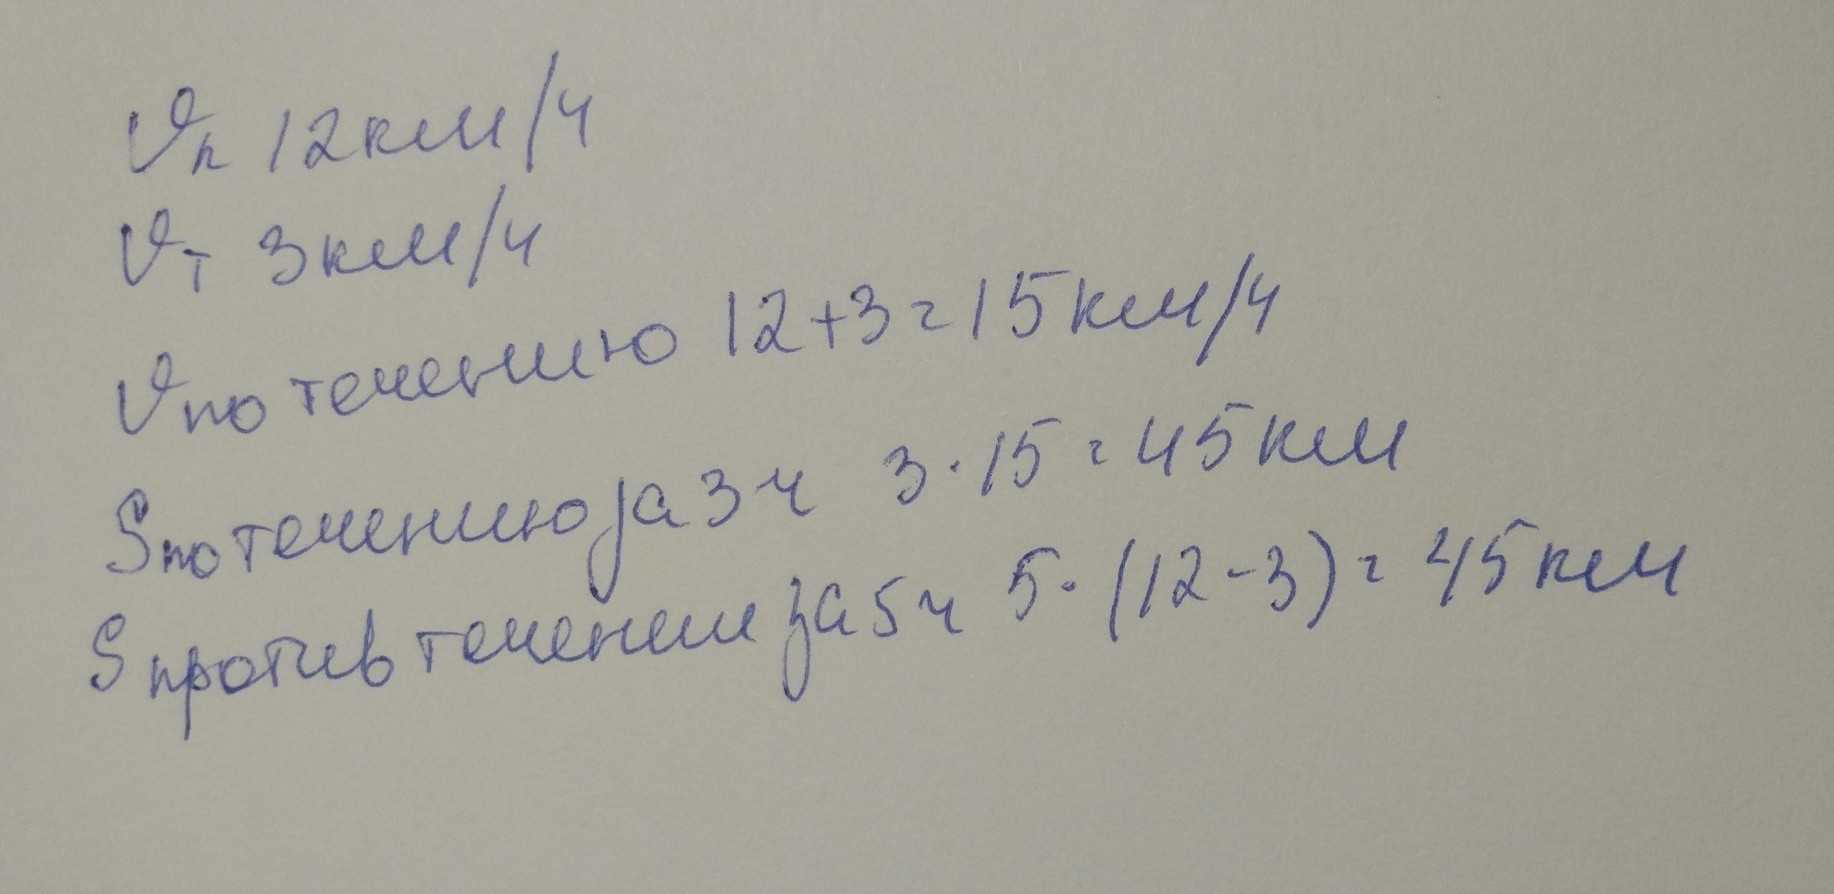 Vл 12км/ч
Vт 3км/ч
Vпо течению 12+3=15км/ч
Sпо течению за 3ч 3·15=45км
Sпротив течения за 5ч 5·(12-3)=45км